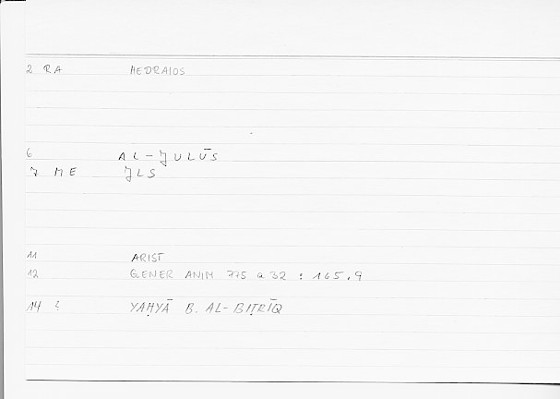 2 RA HEDRAIOS
6 AL-JULŪS
7 ME JLS
11 ARIST
12 GENER ANIM 775 a 32 : 165.9
14 YAḤYĀ B. AL-BIṬRĪQ